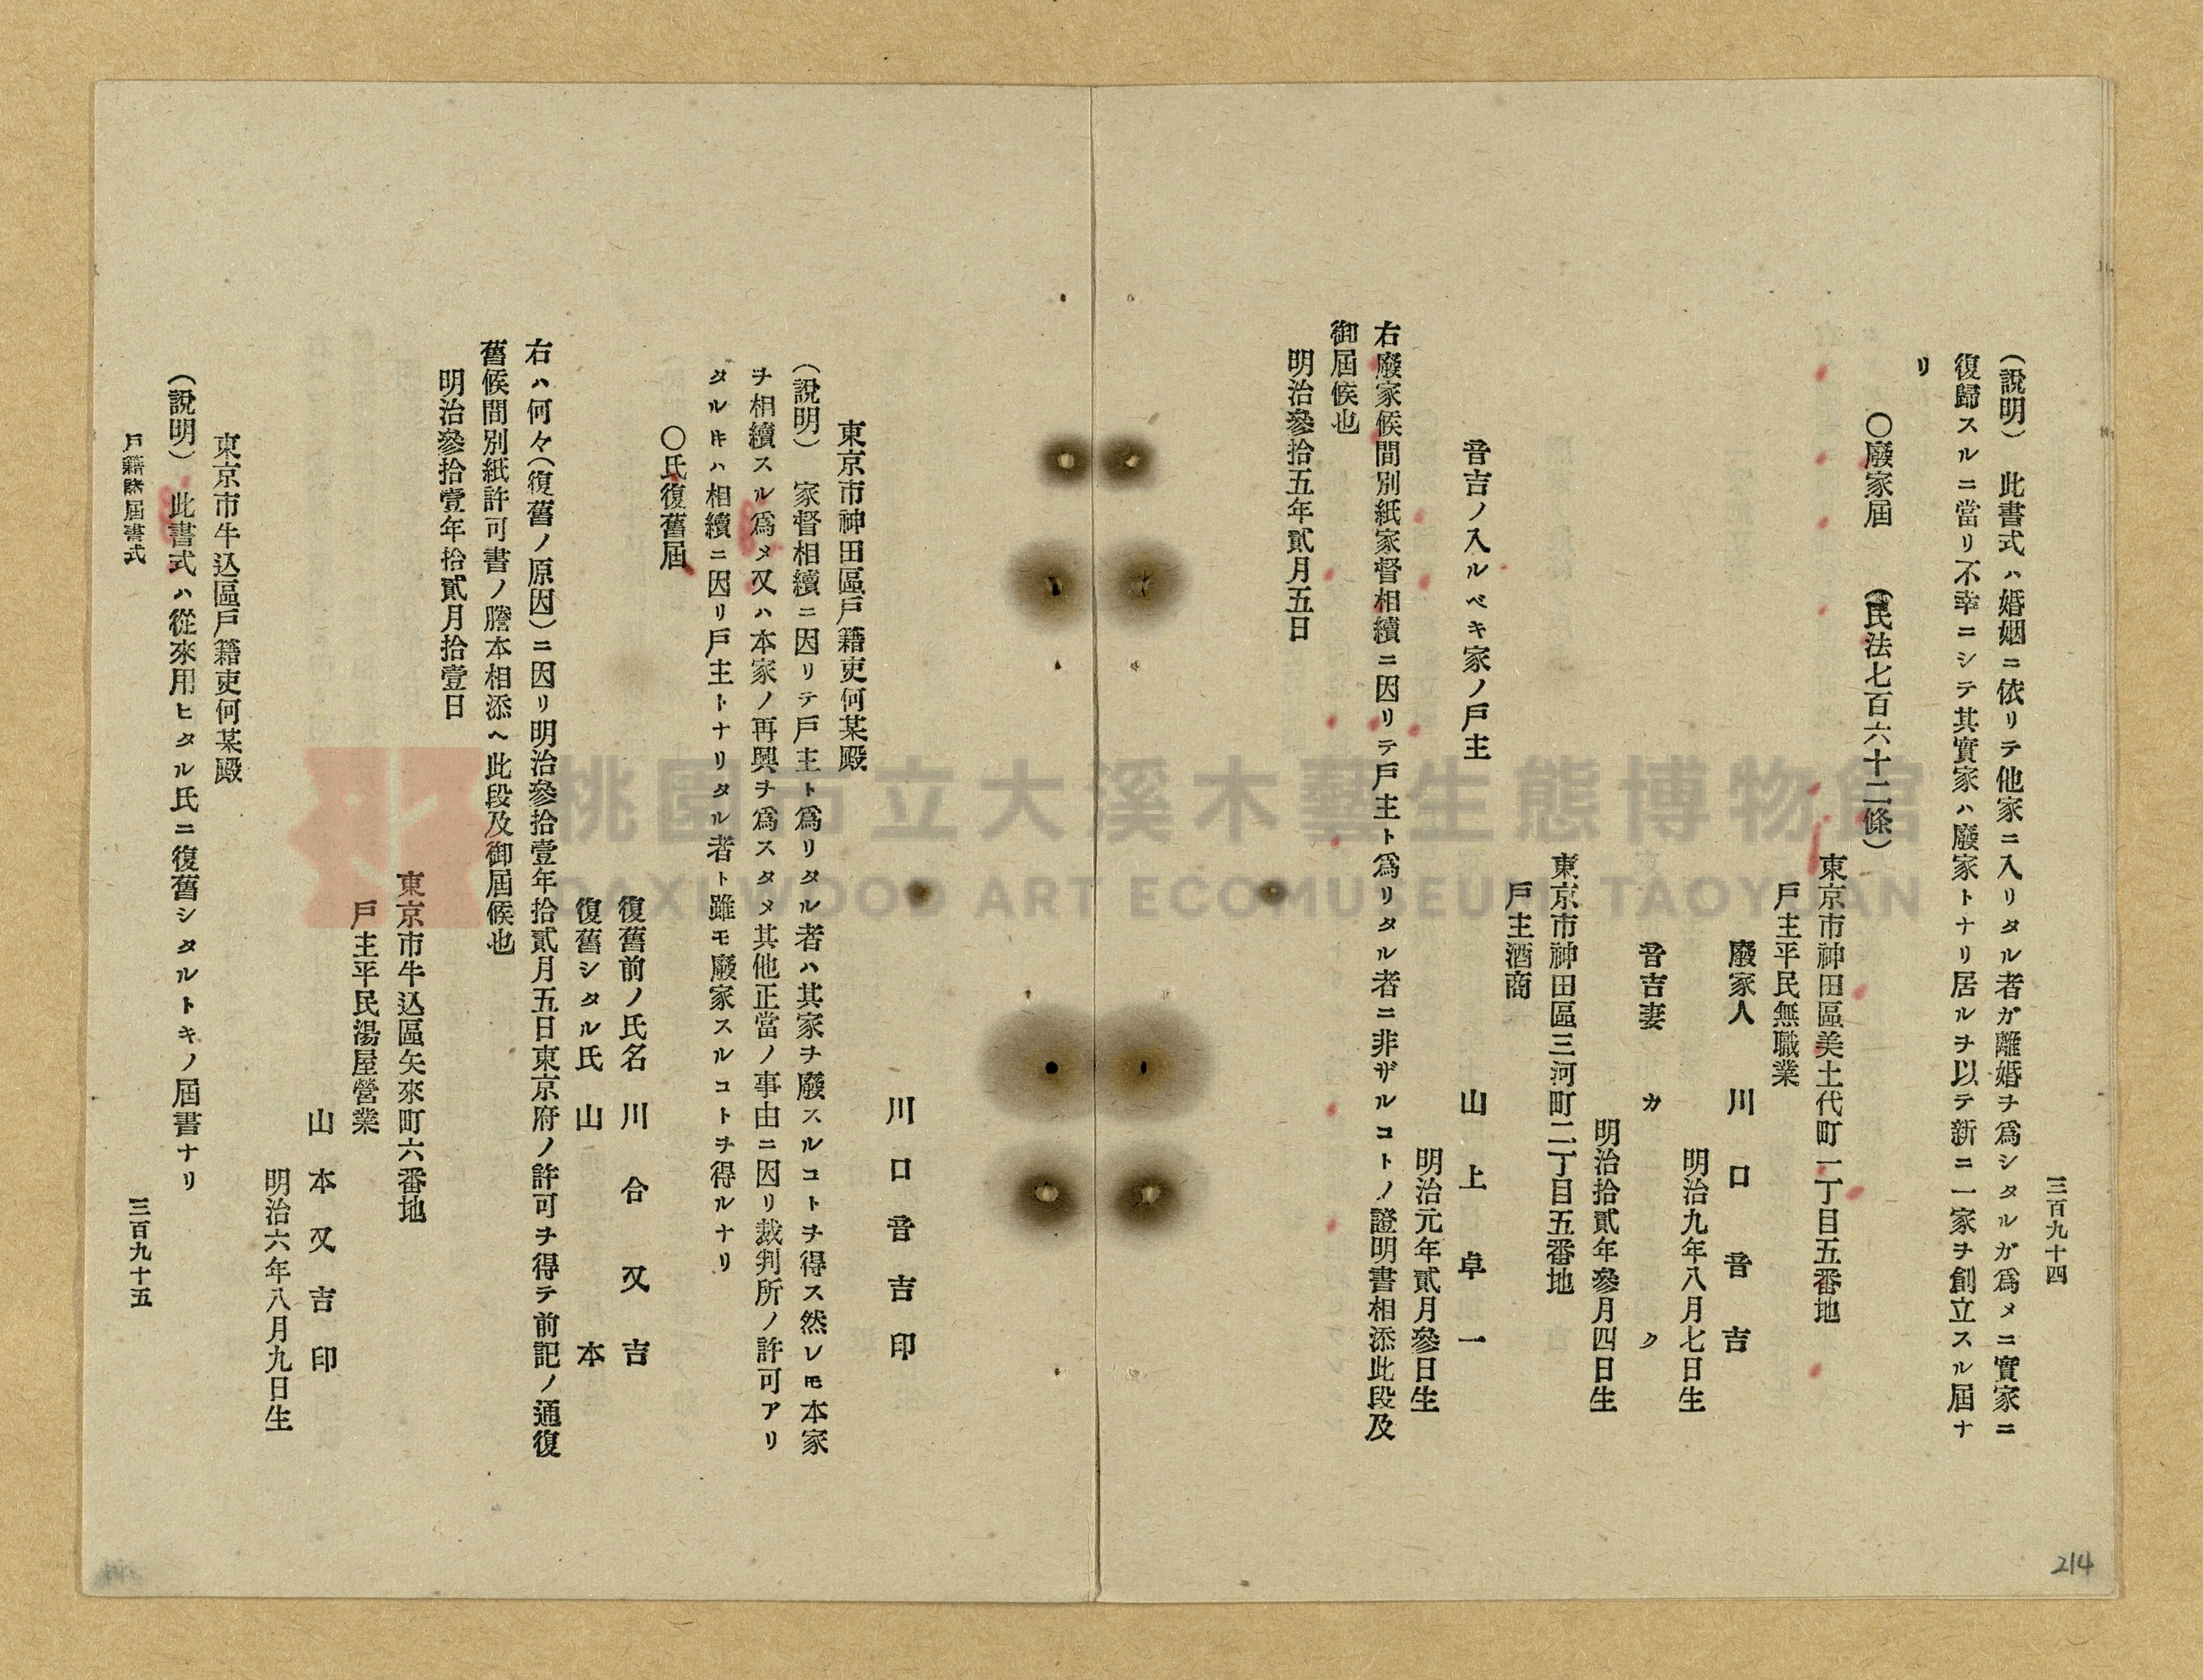 三百九十四
（說明）　此書式ハ婚姻ニ依リテ他家ニ入リタル者ガ離婚ヲ爲シタルガ爲メニ實家ニ
復歸スルニ當リ不幸ニシテ其實家ハ廢家トナリ居ルヲ以テ新ニ一家ヲ創立スル屆ナ
リ
〇廢家屆　（民法七百六十二條）
東京市神田區美土代町一丁目五番地
戶主平民無職業
廢家人　川口音吉
明治九年八月七日生
音吉妻　カク
明治拾貳年參月四日生
東京市神田區三河町二丁目五番地
戶主酒商
音吉ノ入ルベキ家ノ戶主　山上卓一
明治元年貳月參日生
右廢家候間別紙家督相續ニ因リテ戶主ト爲リタル者ニ非ザルコトノ證明書相添此段及
御屆候也
明治參拾五年貳月五日
川口音吉印
東京市神田區戶籍吏何某殿
（說明）　家督相續ニ因リテ戶主ト爲リタル者ハ其家ヲ廢スルコトヲ得ス然レ𪜈本家
ヲ相續スル爲メ又ハ本家ノ再興ヲ爲スタメ其他正當ノ事由ニ因リ裁判所ノ許可アリ
タルキハ相續ニ因リ戶主トナリタル者ト雖モ廢家スルコトヲ得ルナリ
〇氏復舊屆
復舊前ノ氏名　川合又吉
復舊シタル氏　山本
右ハ何々（復舊ノ原因）ニ因リ明治參拾壹年拾貳月五日東京府ノ許可ヲ得テ前記ノ通復
舊候間別紙許可書ノ謄本相添ヘ此段及御屆候也
明治參拾壹年拾貳月拾壹日
東京市牛込區矢來町六番地
戶主平民湯屋營業
山本又吉印
明治六年八月九日生
東京市牛込區戶籍吏何某殿
（說明）　此書式ハ從來用ヒタル氏ニ復舊シタルトキノ屆書ナリ
戶籍諸屆書式
三百九十五
214
桃園市立大溪木藝生態博物館
DAXI WOOD ART ECOMUSEUM TAOYUAN